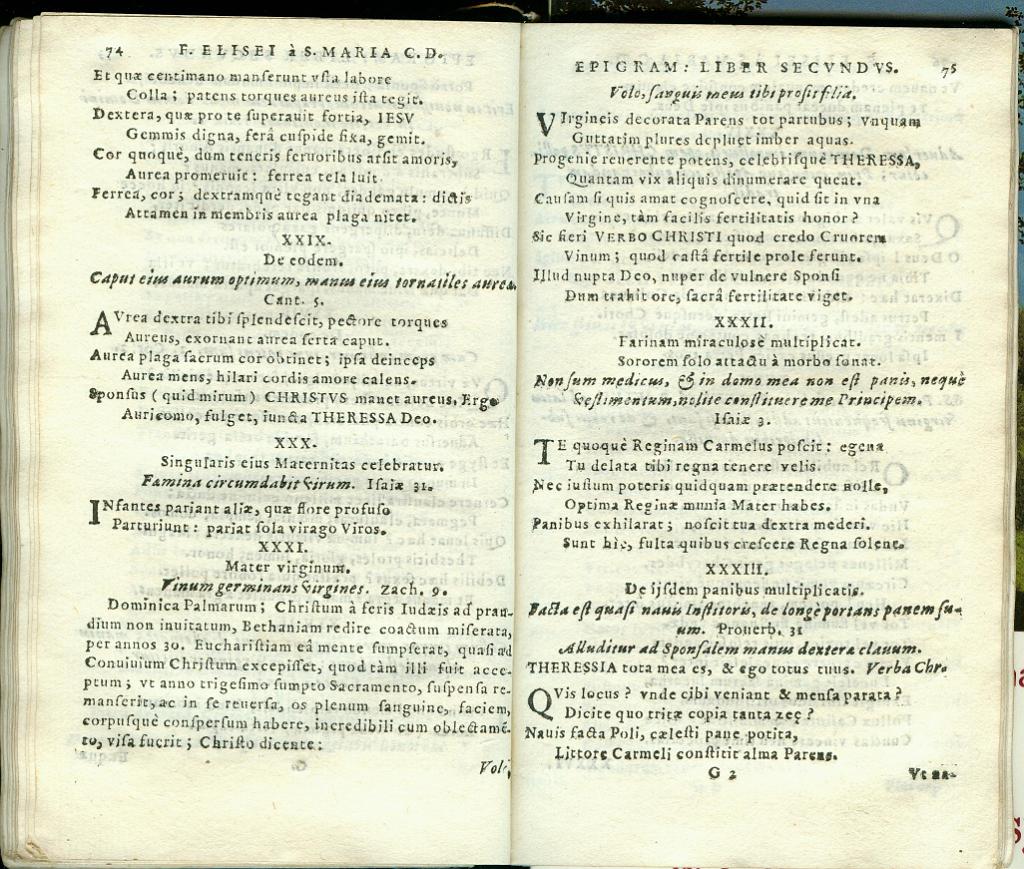 74 F. ELISEI à S. MARIA C.D.
Et quæ centimano manſerunt vſta labore
Colla; patens torques aureus iſta tegit.
Dextera, quæ pro te ſuperauit fortia, IESV
Gemmis digna, ferâ cuſpide fixa, gemit.
Cor quoquè, dum teneris feruoribus arſit amoris,
Aurea promeruit: ferrea tela luit.
Ferrea, cor; dextramquè tegant diademata: dictis
Attamen in membris aurea plaga nitet.
XXIX.
De eodem.
Caput eius aurum optimum, manus eius tornatiles aureæ.
Cant. 5.
AVrea dextra tibi ſplendeſcit, pectore torques
Aureus, exornant aurea ſerta caput.
Aurea plaga ſacrum cor obtinet; ipſa deinceps
Aurea mens, hilari cordis amore calens.
Sponſus (quid mirum) CHRISTVS manet aureus, Ergo
Auricomo, fulget, iuncta THERESSA Deo.
XXX.
Singularis eius Maternitas celebratur.
Fæmina circumdabit virum. Iſaiæ 31.
INfantes pariant aliæ, quæ flore profuſo
Parturiunt: pariat ſola virago Viros.
XXXI.
Mater virginum.
Vinum germinans virgines. Zach. 9.
Dominica Palmarum; Chriſtum à feris Iudæis ad pran-
dium non inuitatum, Bethaniam redire coactum miſerata,
per annos 30. Euchariſtiam eâ mente ſumpſerat, quaſi ad
Conuiuium Chriſtum excepiſſet, quod tàm illi fuit acce-
ptum; vt anno trigeſimo ſumpto Sacramento, ſuſpenſa re-
manſerit, ac in ſe reuerſa, os plenum ſanguine, faciem,
corpuſquè conſperſum habere, incredibili cum oblectamē-
to, viſa fuerit; Chriſto dicente:
Volo,
EPIGRAM: LIBER SECVNDVS. 75
Volo, ſanguis meus tibi proſit filia.
VIrgineis decorata Parens tot partubus; vnquam
Guttatim plures depluet imber aquas.
Progenie reuerente potens, celebriſquè THERESSA,
Quantam vix aliquis dinumerare queat.
Cauſam ſi quis amat cognoſcere, quid ſit in vna
Virgine, tàm facilis fertilitatis honor?
Sic fieri VERBO CHRISTI quod credo Cruorem
Vinum; quod caſtâ fertile prole ferunt.
Illud nupta Deo, nuper de vulnere Sponſi
Dum trahit ore, ſacrâ fertilitate viget.
XXXII.
Farinam miraculosè multiplicat.
Sororem ſolo attactu à morbo ſanat.
Non ſum medicus, & in domo mea non eſt panis, nequè
veſtimentum, nolite conſtituere me Principem.
Iſaiæ 3.
TE quoquè Reginam Carmelus poſcit: egena
Tu delata tibi regna tenere velis.
Nec iuſtum poteris quidquam prætendere nolle,
Optima Reginæ munia Mater habes.
Panibus exhilarat; noſcit tua dextra mederi.
Sunt hîc, fulta quibus creſcere Regna ſolent.
XXXIII.
De ijſdem panibus multiplicatis.
Facta eſt quaſi nauis Inſtitoris, de longè portans panem ſu-
um. Prouerb. 31
Alluditur ad Sponſalem manus dexteræ clauum.
THERESSIA tota mea es, & ego totus tuus. Verba Chr.
QVis locus? vnde cibi veniant & menſa parata?
Dicite quo tritæ copia tanta zeę?
Nauis facta Poli, cæleſti pane potita,
Littore Carmeli conſtitit alma Parens.
G 2 Vt na-